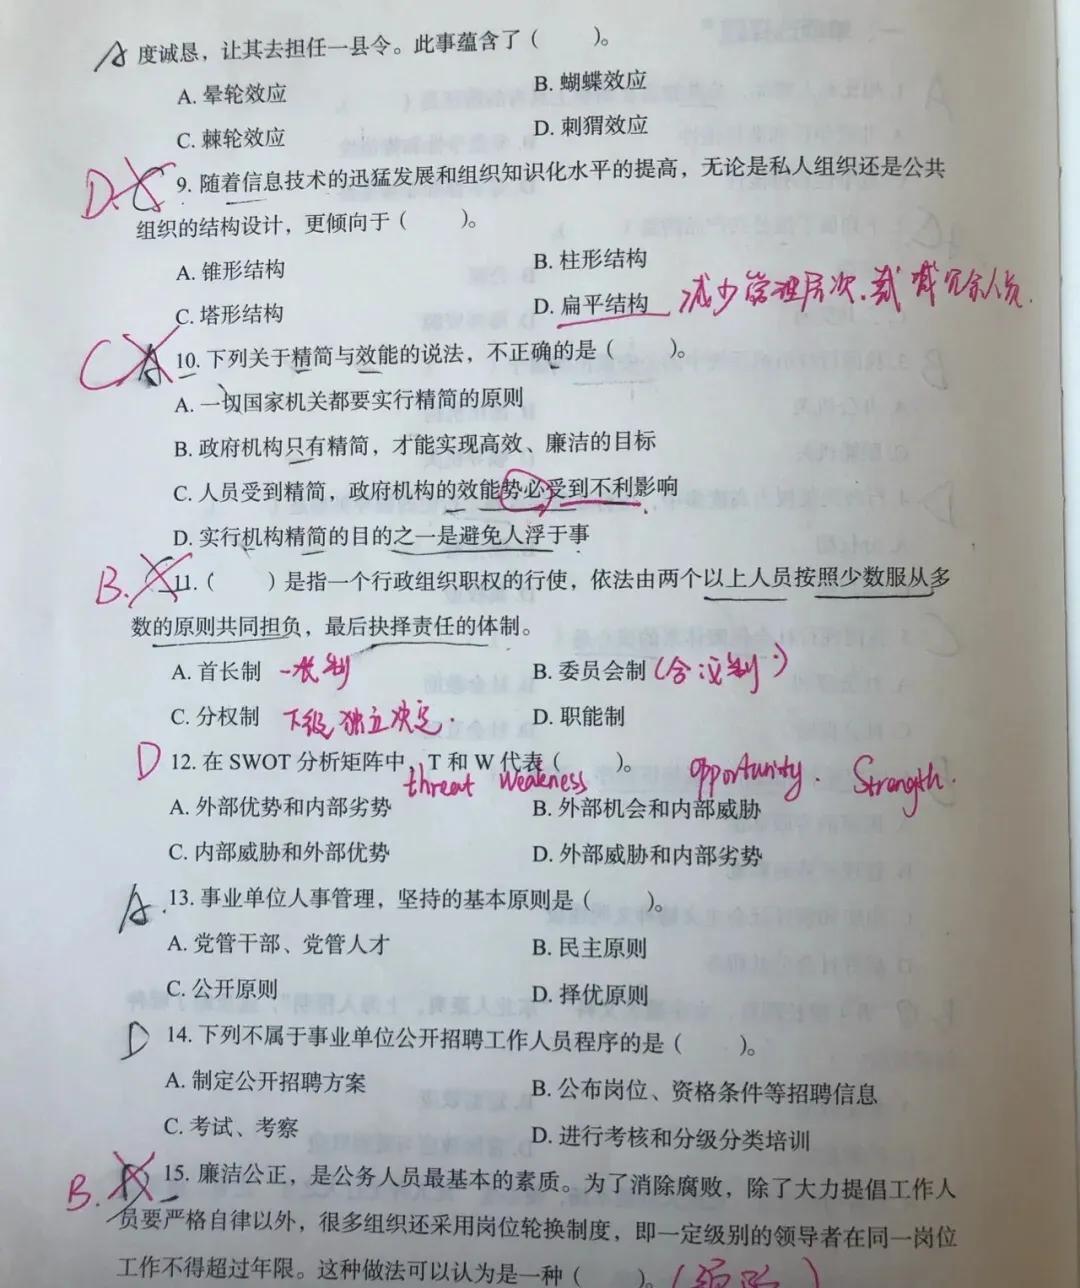 A 度诚恳，让其去担任一县令。此事蕴含了（　　）。
A. 晕轮效应　　B. 蝴蝶效应
C. 棘轮效应　　D. 刺猬效应
D. 9. 随着信息技术的迅猛发展和组织知识化水平的提高，无论是私人组织还是公共
组织的结构设计，更倾向于（　　）。
A. 锥形结构　　B. 柱形结构
C. 塔形结构　　D. 扁平结构 减少管理层次、裁减冗余人员.
C A 10. 下列关于精简与效能的说法，不正确的是（　　）。
A. 一切国家机关都要实行精简的原则
B. 政府机构只有精简，才能实现高效、廉洁的目标
C. 人员受到精简，政府机构的效能势必受到不利影响
D. 实行机构精简的目的之一是避免人浮于事
B. 11.（　　）是指一个行政组织职权的行使，依法由两个以上人员按照少数服从多
数的原则共同担负，最后抉择责任的体制。
A. 首长制 一长制　　B. 委员会制（合议制）
C. 分权制 下级独立决定.　　D. 职能制
D 12. 在 SWOT 分析矩阵中，T 和 W 代表（　　）。
threat weakness opportunity. Strength.
A. 外部优势和内部劣势　　B. 外部机会和内部威胁
C. 内部威胁和外部优势　　D. 外部威胁和内部劣势
A. 13. 事业单位人事管理，坚持的基本原则是（　　）。
A. 党管干部、党管人才　　B. 民主原则
C. 公开原则　　D. 择优原则
D 14. 下列不属于事业单位公开招聘工作人员程序的是（　　）。
A. 制定公开招聘方案　　B. 公布岗位、资格条件等招聘信息
C. 考试、考察　　D. 进行考核和分级分类培训
B. 15. 廉洁公正，是公务人员最基本的素质。为了消除腐败，除了大力提倡工作人
员要严格自律以外，很多组织还采用岗位轮换制度，即一定级别的领导者在同一岗位
工作不得超过年限。这种做法可以认为是一种（　　）。